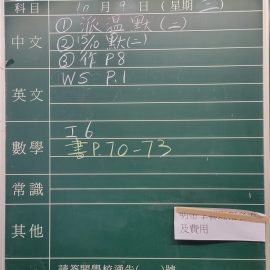 科目 10月9日(星期三)
中文 ① 派溫默(二)
② 15/10 默(二)
③ 作 P8
WS P.1
英文
I 6
數學 書P.70-73
常識
其他
及費用
請簽閱學校通告( )號